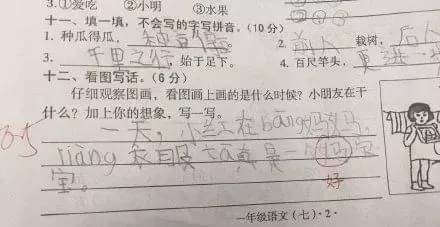 3.①爱吃 ②小明 ③水果
十一、填一填，不会写的字写拼音。(10分)
1. 种瓜得瓜，种豆得豆。 2. 前人栽树，后人
3. 千里之行，始于足下。 4. 百尺竿头，更进一
十二、看图写话。(6分)
仔细观察图画，看图画上画的是什么时候？小朋友在干
什么？加上你的想象，写一写。
一天，小红在bāng妈妈
jiàng衣服 tā真是一 妈宝
宝。
好
一年级语文（七）·2·